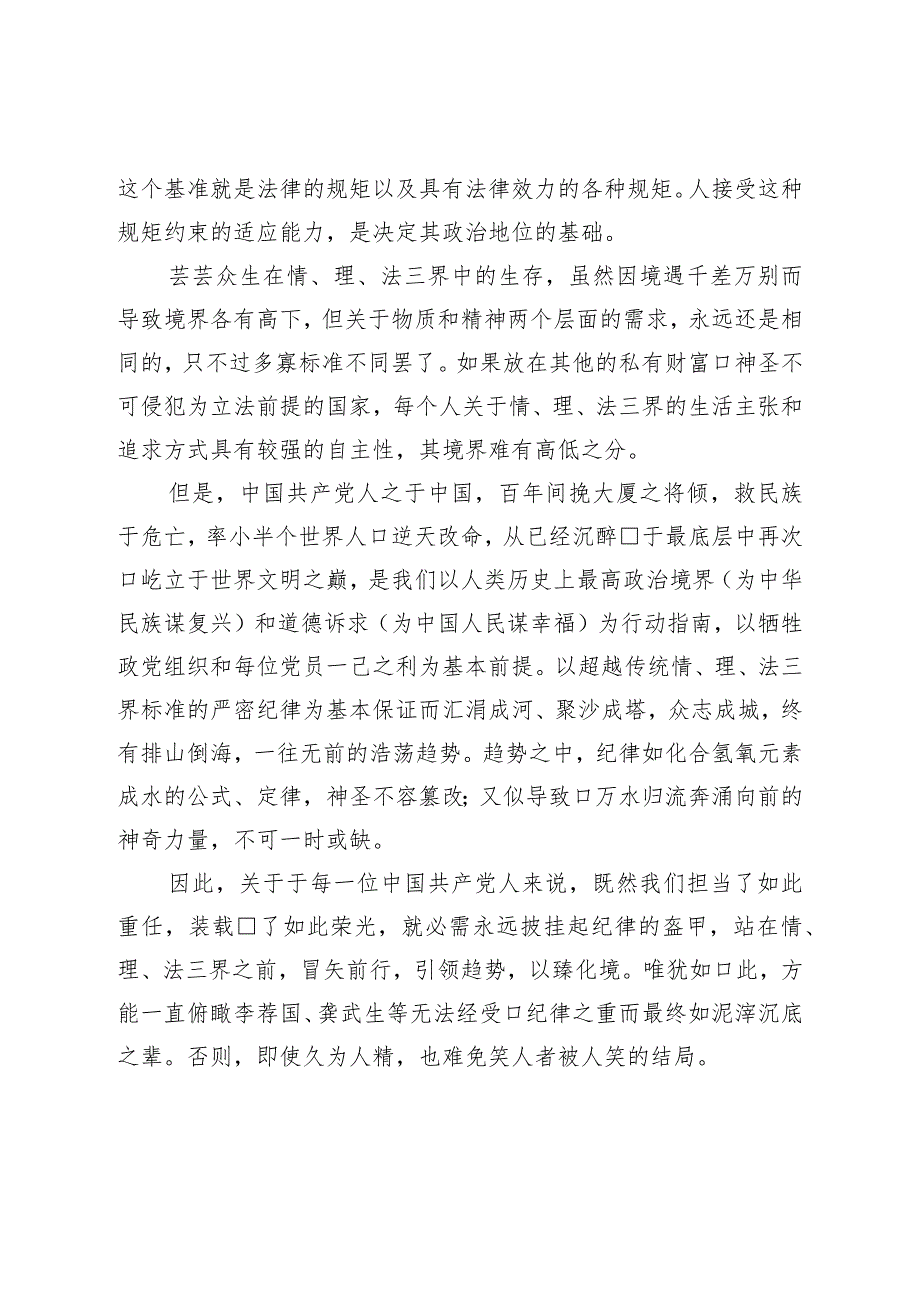 这个基准就是法律的规矩以及具有法律效力的各种规矩。人接受这种
规矩约束的适应能力，是决定其政治地位的基础。
芸芸众生在情、理、法三界中的生存，虽然因境遇千差万别而
导致境界各有高下，但关于物质和精神两个层面的需求，永远还是相
同的，只不过多寡标准不同罢了。如果放在其他的私有财富口神圣不
可侵犯为立法前提的国家，每个人关于情、理、法三界的生活主张和
追求方式具有较强的自主性，其境界难有高低之分。
但是，中国共产党人之于中国，百年间挽大厦之将倾，救民族
于危亡，率小半个世界人口逆天改命，从已经沉醉□于最底层中再次
口屹立于世界文明之巅，是我们以人类历史上最高政治境界（为中华
民族谋复兴）和道德诉求（为中国人民谋幸福）为行动指南，以牺牲
政党组织和每位党员一己之利为基本前提。以超越传统情、理、法三
界标准的严密纪律为基本保证而汇涓成河、聚沙成塔，众志成城，终
有排山倒海，一往无前的浩荡趋势。趋势之中，纪律如化合氢氧元素
成水的公式、定律，神圣不容篡改；又似导致口万水归流奔涌向前的
神奇力量，不可一时或缺。
因此，关于于每一位中国共产党人来说，既然我们担当了如此
重任，装载□了如此荣光，就必需永远披挂起纪律的盔甲，站在情、
理、法三界之前，冒矢前行，引领趋势，以臻化境。唯犹如口此，方
能一直俯瞰李荐国、龚武生等无法经受口纪律之重而最终如泥滓沉底
之辈。否则，即使久为人精，也难免笑人者被人笑的结局。